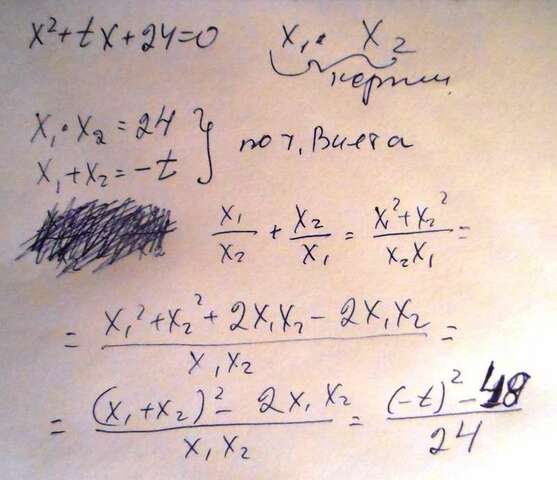 x²+tx+24=0 x₁, x₂
корни
x₁·x₂=24
x₁+x₂=-t } по т, Виета
x₁/x₂ + x₂/x₁ = x₁²+x₂²/x₂x₁ =
= x₁²+x₂²+2x₁x₂-2x₁x₂/x₁x₂ =
= (x₁+x₂)²-2x₁x₂/x₁x₂ = (-t)²-48/24